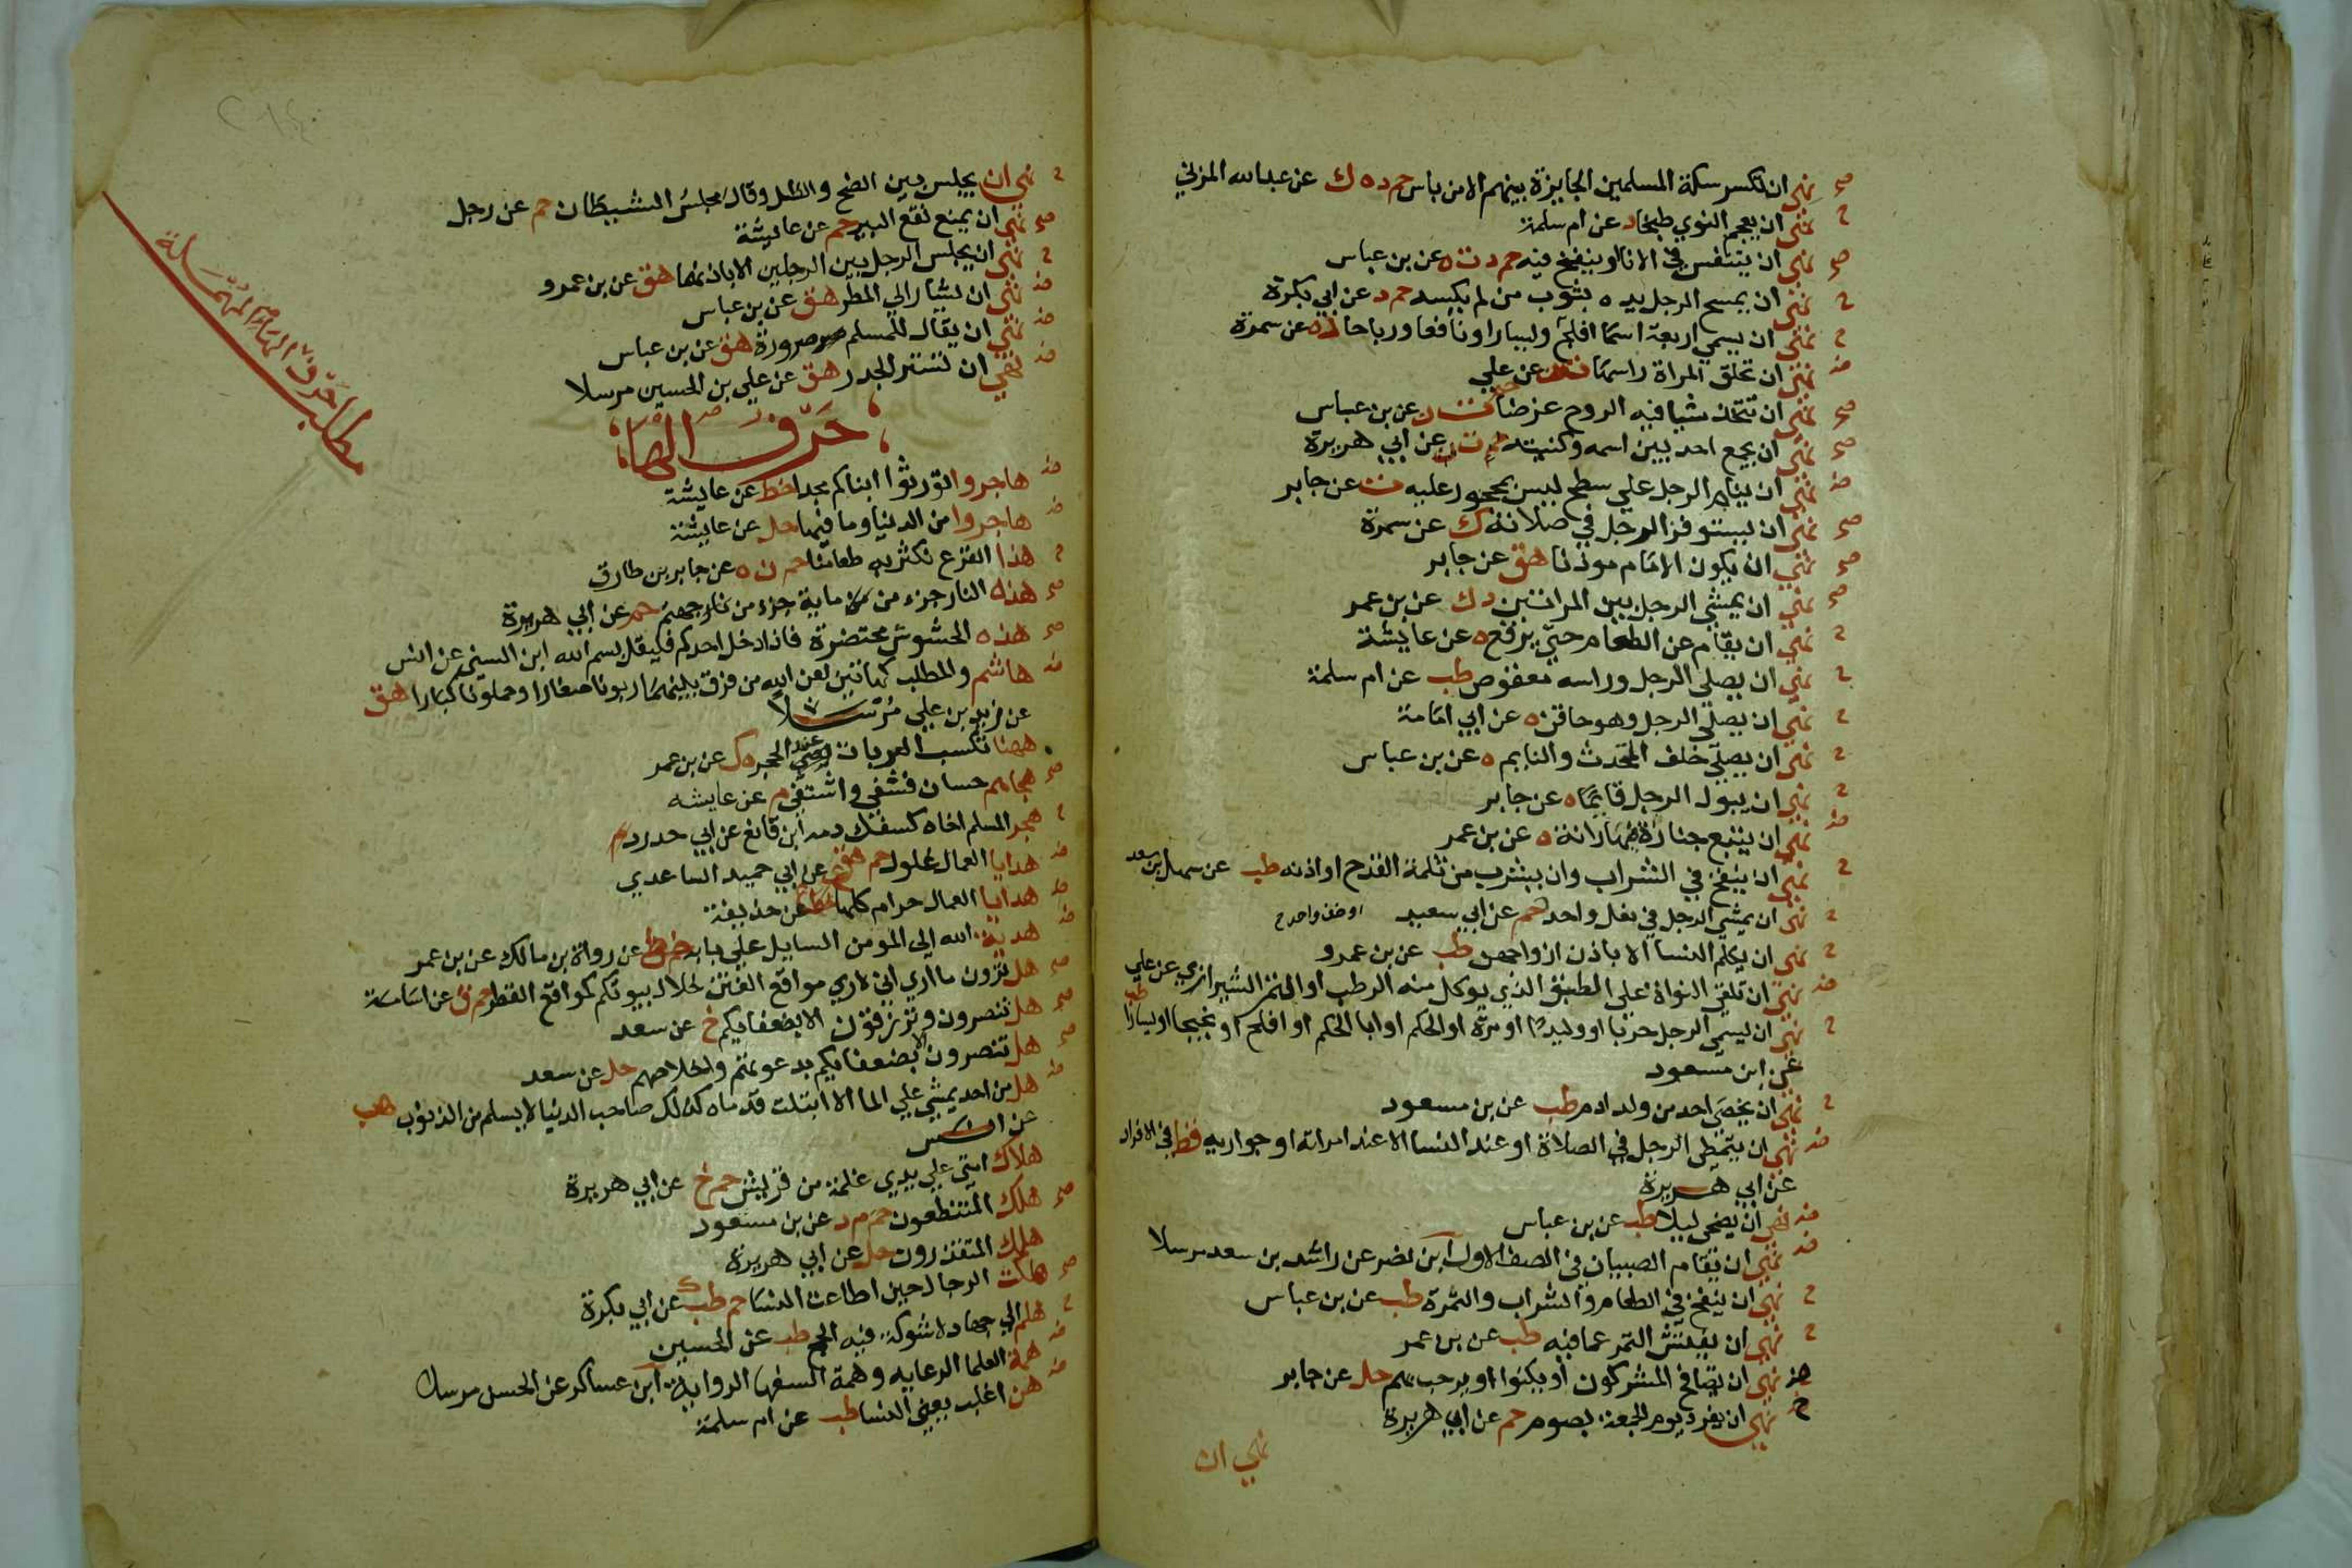 صح نهي ان تكسر سكة المسلمين الجايزة بينهم الا من باس حم د ه ك عن عبدالله المزني
ح نهي ان يعجم النوي طبخا د عن ام سلمة
صح نهي ان يتنفس في الانا او ينفخ فيه حم د ت ه عن بن عباس
ح نهي ان يمسح الرجل يده بثوب من لم يكسه حم د عن ابي بكرة
ح نهي ان يسمي اربعة اسما افلح ويسارا ونافعا ورباحا د ه عن سمرة
ض نهي ان تحلق المراة راسها ت ن عن علي
صح نهي ان تتخذ شيا فيه الروح غرضا حم ت ن عن بن عباس
صح نهي ان يجمع احد بين اسمه وكنيته ت عن ابي هريرة
ض نهي ان ينام الرجل علي سطح ليس بمحجور عليه ت عن جابر
صح نهي ان يستوفز الرجل في صلاته ك عن سمرة
صح نهي ان يكون الامام موذنا هق عن جابر
صح نهي ان يمشي الرجل بين المراتين د ك عن بن عمر
ح نهي ان يقام عن الطعام حتي يرفع ه عن عايشة
ح نهي ان يصلي الرجل وراسه معقوص طب عن ام سلمة
ح نهي ان يصلي الرجل وهو حاقن ه عن ابي امامة
ح نهي ان يصلي خلف المتحدث والنايم ه عن بن عباس
ح نهي ان يبول الرجل قايما ه عن جابر
ض نهي ان يتبع جنازة معها رانة ه عن بن عمر
ح نهي ان ينفخ في الشراب وان يشرب من ثلمة القدح او اذنه طب عن سهل بن سعد
ح نهي ان يمشي الرجل في نعل واحد او خف واحد حم عن ابي سعيد
ح نهي ان يكلم النسا الا باذن ازواجهن طب عن بن عمرو
ض نهي ان تلقي النواة علي الطبق الذي يوكل منه الرطب او التمر الشيرازي عن علي
ح نهي ان يسمي الرجل حربا او وليدا او مرة او الحكم او ابا الحكم او افلح او نجيحا او يسارا طب
عن ابن مسعود
ح نهي ان يخصي احد من ولد ادم طب عن بن مسعود
ض نهي ان يتمطي الرجل في الصلاة او عند النسا الا عند امراته او جواريه قط في الافراد
عن ابي هريرة
ض نهي ان يضحي ليلا طب عن بن عباس
ض نهي ان يقام الصبيان في الصف الاول ابن نصر عن راشد بن سعد مرسلا
ح نهي ان ينفخ في الطعام والشراب والثمرة طب عن بن عباس
ح نهي ان يفتش التمر عما فيه طب عن بن عمر
ض نهي ان يصافح المشركون او يكنوا او يرحب بهم حل عن جابر
ح نهي ان يفرد يوم الجمعة بصوم حم عن ابي هريرة
نهي ان
ح نهي ان يجلس بين الضح والظل وقال مجلس الشيطان حم عن رجل
صح نهي ان يمنع نقع البير حم عن عايشة
ح نهي ان يجلس الرجل بين الرجلين الا باذنهما هق عن بن عمرو
ض نهي ان يشار الي المطر هق عن بن عباس
ض نهي ان يقال للمسلم صرورة هق عن بن عباس
ض نهي ان تستر الجدر هق عن علي بن الحسين مرسلا
حرف الهاء
مطلب حرف الهاء المهملة
ض هاجروا تورثوا ابناكم مجدا خط عن عايشة
ض هاجروا من الدنيا وما فيها حل عن عايشة
ح هذا القرع نكثر به طعامنا حم ن ه عن جابر بن طارق
صح هذه النار جزء من ماية جزء من نار جهنم حم عن ابي هريرة
صح هذه الحشوش محتضرة فاذا دخل احدكم فليقل بسم الله ابن السني عن انس
ض هاشم والمطلب كهاتين لعن الله من فرق بينهما ربونا صغارا وحملونا كبارا هق
عن زيد بن علي مرسلا
ههنا تسكب العبرات يعني عند الحجر ه ك عن بن عمر
صح هجاهم حسان فشفي واشتفي م عن عايشه
ح هجر المسلم اخاه كسفك دمه ابن قانع عن ابي حدرد
ض هدايا العمال غلول حم هق عن ابي حميد الساعدي
ض هدايا العمال حرام كلها ع عن حذيفة
ض هدية الله الي المومن السايل علي بابه خط عن رواة بن مالك عن بن عمر
صح هل ترون ما اري اني لاري مواقع الفتن خلال بيوتكم كمواقع القطر حم ق عن اسامة
صح هل تنصرون وترزقون الا بضعفايكم خ عن سعد
صح هل تنصرون الا بضعفايكم بدعوتهم واخلاصهم حل عن سعد
ض هل من احد يمشي علي الما الا ابتلت قدماه كذلك صاحب الدنيا لا يسلم من الذنوب هب
عن انس
هلاك امتي علي يدي غلمة من قريش حم خ عن ابي هريرة
صح هلك المتنطعون حم م د عن بن مسعود
هلك المتقذرون حل عن ابي هريرة
صح هلكت الرجال حين اطاعت النسا حم طب ك عن ابي بكرة
ح هلم الي جهاد لا شوكة فيه الحج طب عن الحسين
ض همة العلما الرعايه وهمة السفها الرواية ابن عساكر عن الحسن مرسلا
ض هن اغلب يعني النسا طب عن ام سلمة